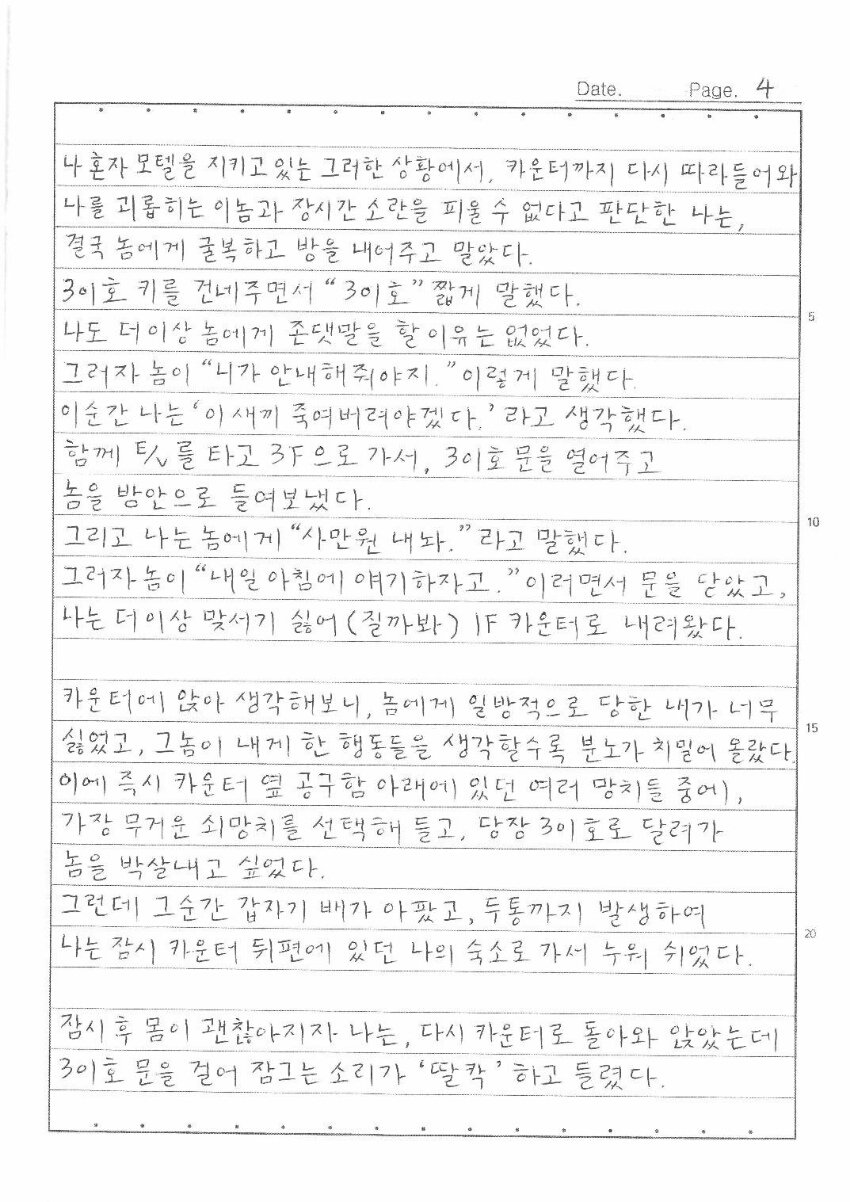 Date. Page. 4
나 혼자 모텔을 지키고 있는 그러한 상황에서, 카운터까지 다시 따라들어와
나를 괴롭히는 이놈과 장시간 소란을 피울 수 없다고 판단한 나는,
결국 놈에게 굴복하고 방을 내어주고 말았다.
301호 키를 건네주면서 "301호" 짧게 말했다.
나도 더이상 놈에게 존댓말을 할 이유는 없었다.
그러자 놈이 "니가 안내해줘야지." 이렇게 말했다.
이순간 나는 '이 새끼 죽여버려야겠다.' 라고 생각했다.
함께 E/V를 타고 3F으로 가서, 301호 문을 열어주고
5
놈을 방안으로 들여보냈다.
그리고 나는 놈에게 "사만원 내놔." 라고 말했다.
10
그러자 놈이 "내일 아침에 얘기하자고." 이러면서 문을 닫았고,
나는 더이상 맞서기 싫어 (질까봐) 1F 카운터로 내려왔다.
카운터에 앉아 생각해보니, 놈에게 일방적으로 당한 내가 너무
15
싫었고, 그놈이 내게 한 행동들을 생각할수록 분노가 치밀어 올랐다.
이에 즉시 카운터 옆 공구함 아래에 있던 여러 망치들 중에,
가장 무거운 쇠망치를 선택해 들고, 당장 301호로 달려가
놈을 박살내고 싶었다.
그런데 그순간 갑자기 배가 아팠고, 두통까지 발생하여
20
나는 잠시 카운터 뒤편에 있던 나의 숙소로 가서 누워 쉬었다.
잠시 후 몸이 괜찮아지자 나는, 다시 카운터로 돌아와 앉았는데
301호 문을 걸어 잠그는 소리가 '딸칵' 하고 들렸다.